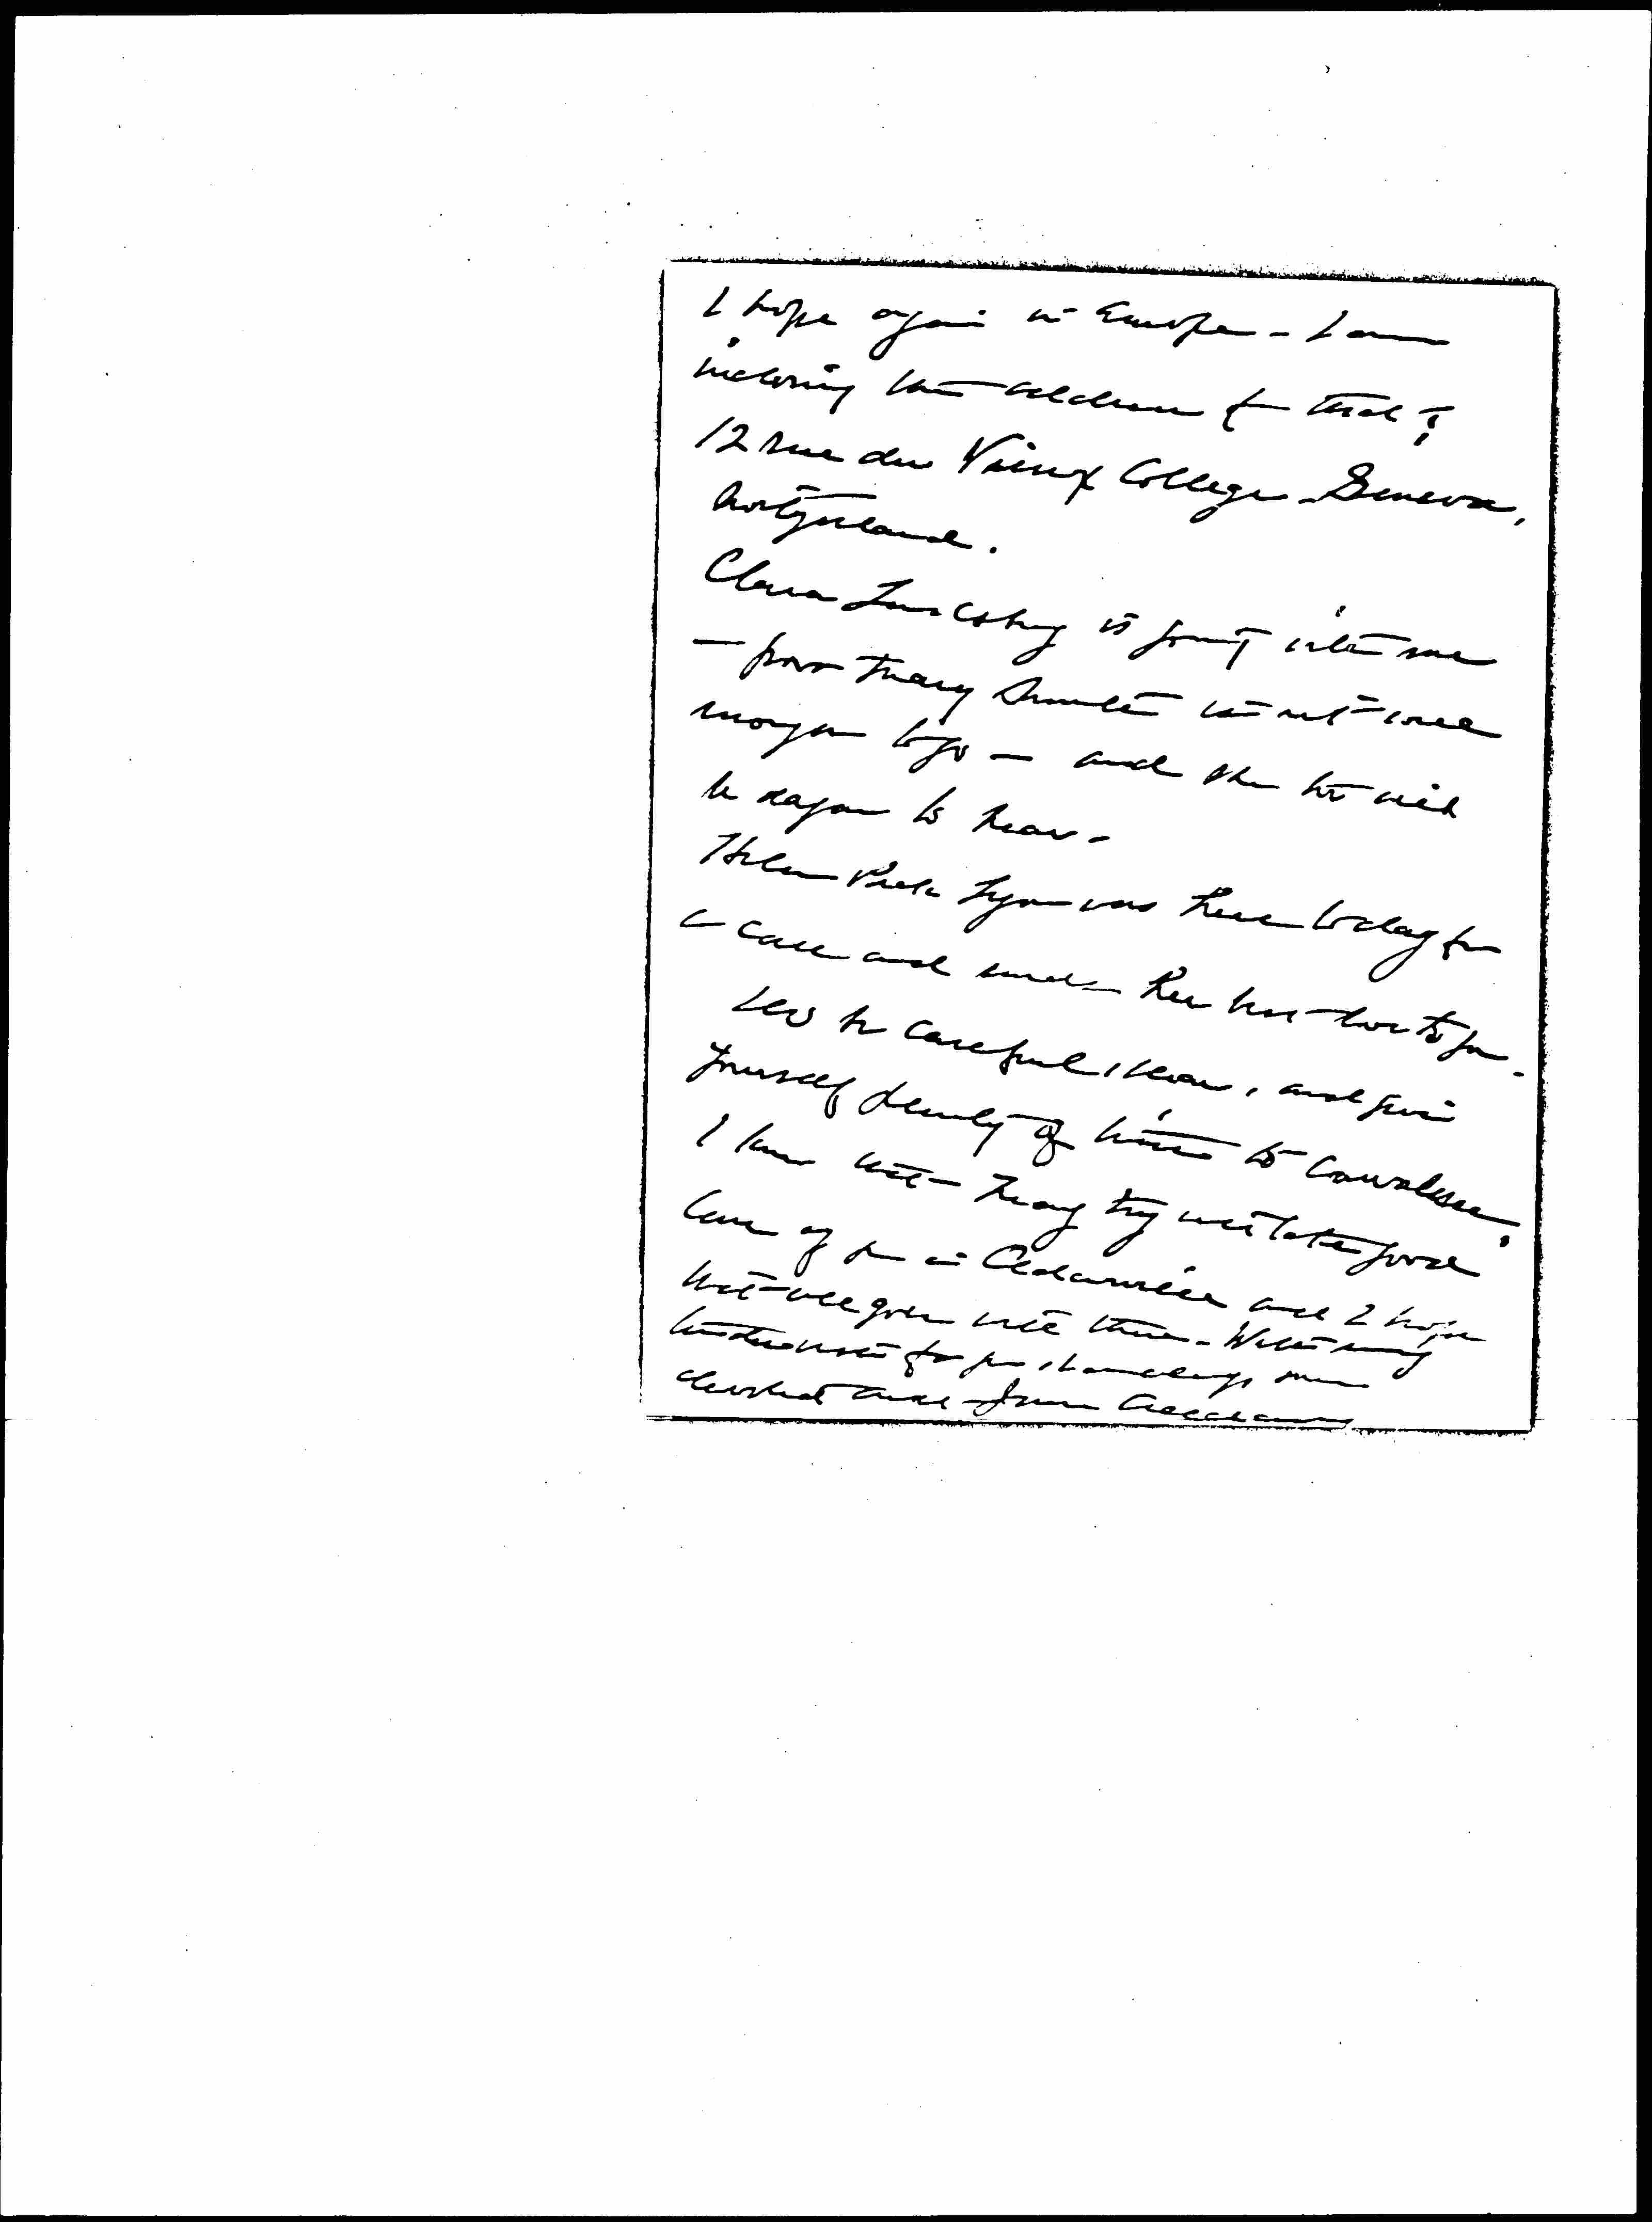 I hope again in Europe - I am
inclosing the address for that:
12 rue du Vieux College Geneva,
Switzerland.
Clara Landsberg is going with me
- poor Mary Smith is not well
enough to go - and she too will
be eager to hear -
Helen Lyon was here today for
a call and sends her best love to you -
Do be careful, dear, and give
yourself plenty of time to convalesce.
I know that they will take good
care of you in Cedarville and I hope
that all goes well there - With my
for you, I am always your
devoted aunt Jane Addams